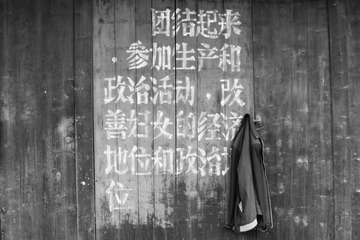 团结起来
，参加生产和
政治活动，改
善妇女的经济
地位和政治
位